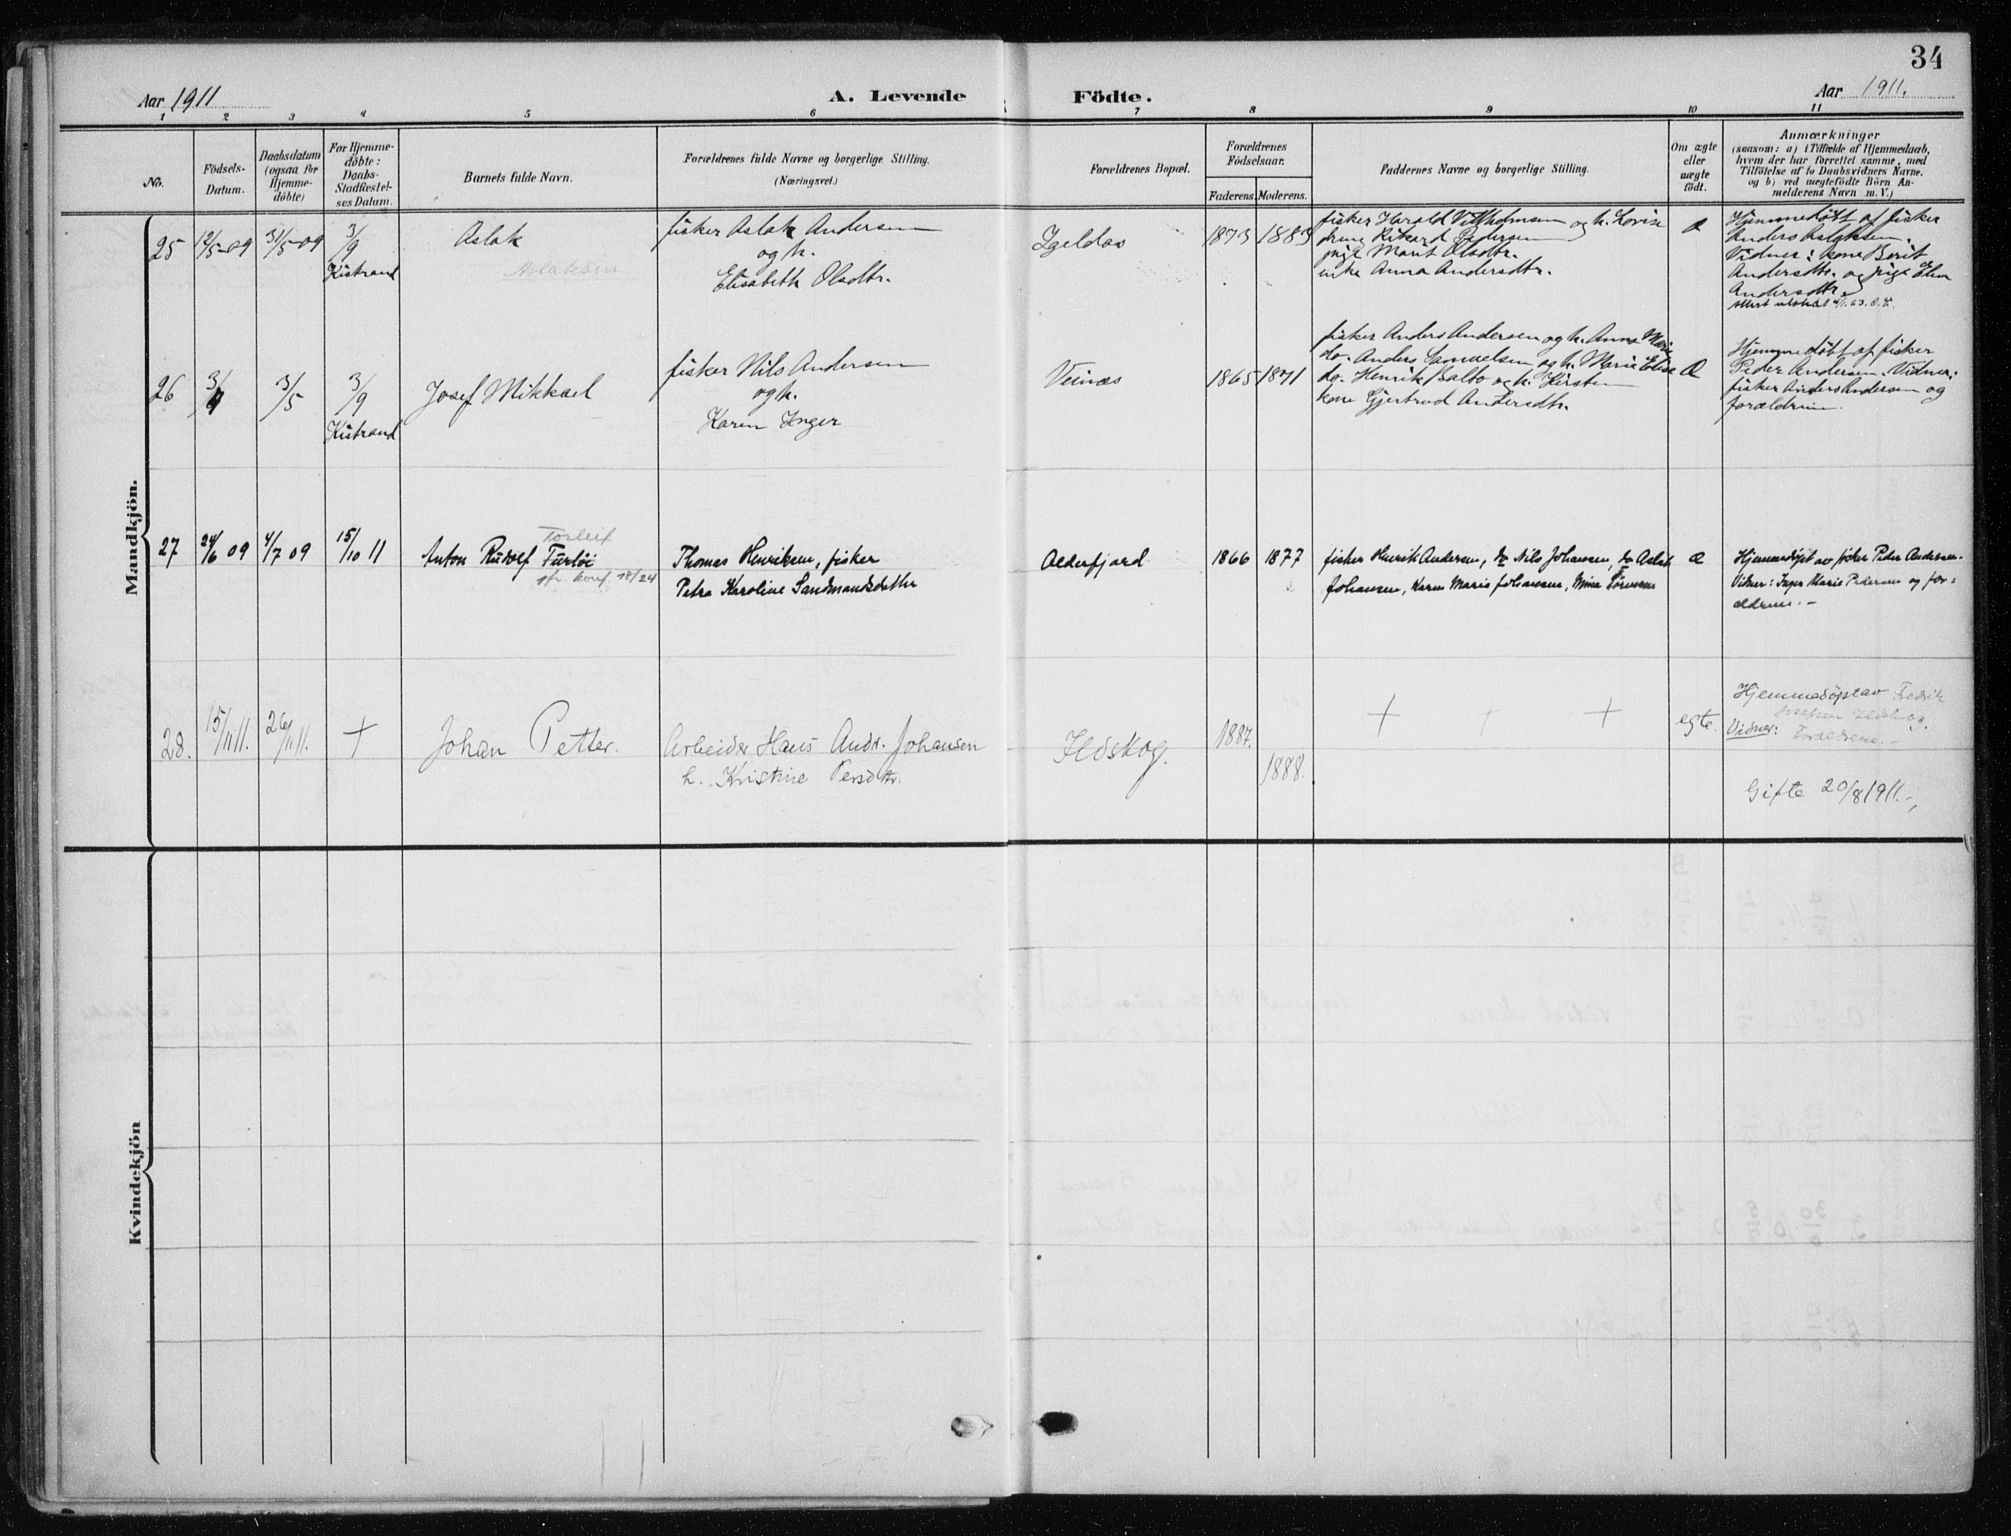 34
Aar 1911
A. Levende
Födte.
Aar 1911.
1 2 3 4 5 6 7 8 9 10 11
No.
Födsels-
Datum.
Daabsdatum
(ogsaa for
Hjemme-
döbte)
For Hjemme-
döbte:
Daabs-
Stadfæstel-
ses Datum.
Barnets fulde Navn.
Forældrenes fulde Navne og borgerlige Stilling.
(Næringsvei.)
Forældrenes Bopæl.
Forældrenes
Födselsaar.
Faderens. Moderens.
Faddernes Navne og borgerlige Stilling.
Om ægte
eller
uægte
födt.
Anmærkninger
(saasom: a) i Tilfælde af Hjemmedaab,
hvem der har forrettet samme, med
Tilföielse af to Daabsvidners Navne.
og b) ved uægtefödte Börn An-
melderens Navn m. V.)
Mandkjön.
25
12/5-09
31/5-09
3/9
Kistrand
Aslak
Aslaksen
fisker Aslak Andersen
og h.
Elisabeth Olsdtr.
Igeldas
1873
1883
fisker Harald Vilhelmsen og h. Lovise
dreng Rikard Pedersen
pige Marit Olsdtr.
enke Anna Andersdtr.
Æ
Hjemmedøbt af fisker
Anders Aslaksen.
Vidner: kone Berit
Andersdtr. og pige Elen
Andersdtr.
26
3/4
3/5
3/9
Kistrand
Josef Mikkael
fisker Nils Andersen
og h.
Karen Inger
Veinæs
1865
1871
fisker Anders Andersen og h. Anna Marie
do. Anders Samuelsen og h. Marie Elise
do. Henrik Balto og h. Kirsten
kone Gjertrud Andersdtr.
Æ
Hjemmedøbt af fisker
Peder Andersen. Vidner:
fisker Anders Andersen og
forældrene.
27
24/6 09
4/7 09
15/10 11
Torleif
Anton Rudolf Furtøi
str. konf. 18/24
Thomas Henriksen, fisker
Petra Karoline Sandmandsdatter
Olderfjord
1866
1877
fisker Henrik Andersen, do Nils Johansen, do Aslak
Johansen, Karen Marie Johansen, Mina Sörensen
Æ
Hjemmedøpt av fisker Peder Andersen.
Vidner: Inger Marie Pedersen og for=
ældrene. –
28.
15/11 11.
26/11 11.
+
Johan Petter.
Arbeider Hans Andr. Johansen
h. Kristine Persdtr.
Ildskog.
1887.
1888.
+ + +
egte.
Hjemmedøpt av Fredrik
Josefsen Ildskog.
Vidner: Forældrene. –
Gifte 20/8 1911. –
Kvindekjön